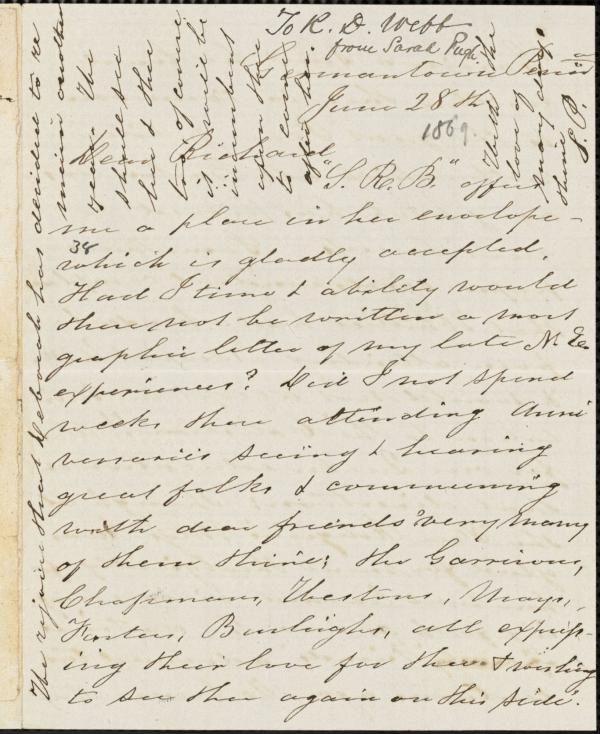 To R. D. Webb
from Sarah Pugh.
Germantown Penn'a
June 28th
1869.
Dear Richard
"S. R. B." offers
me a place in her envelope -
38
which is gladly accepted.
Had I time & ability would
there not be written a most
graphic letter of my late N. E.
experiences? Did I not spend
weeks there attending Anni
versaries seeing & hearing
great folks & communing
with dear friends "very many
of them thine; the Garrisons,
Chapmans, Westons, Mays,
Fosters, Burleighs, all express-
ing their love for thee & wishing
to see thee again on this side.
We rejoice that Deborah has decided to re
main another
year. She
shall see
her & thee
to of course
it will be
incumbent
upon thee
to come
after her.
With the
love of
many
thine
S. P.